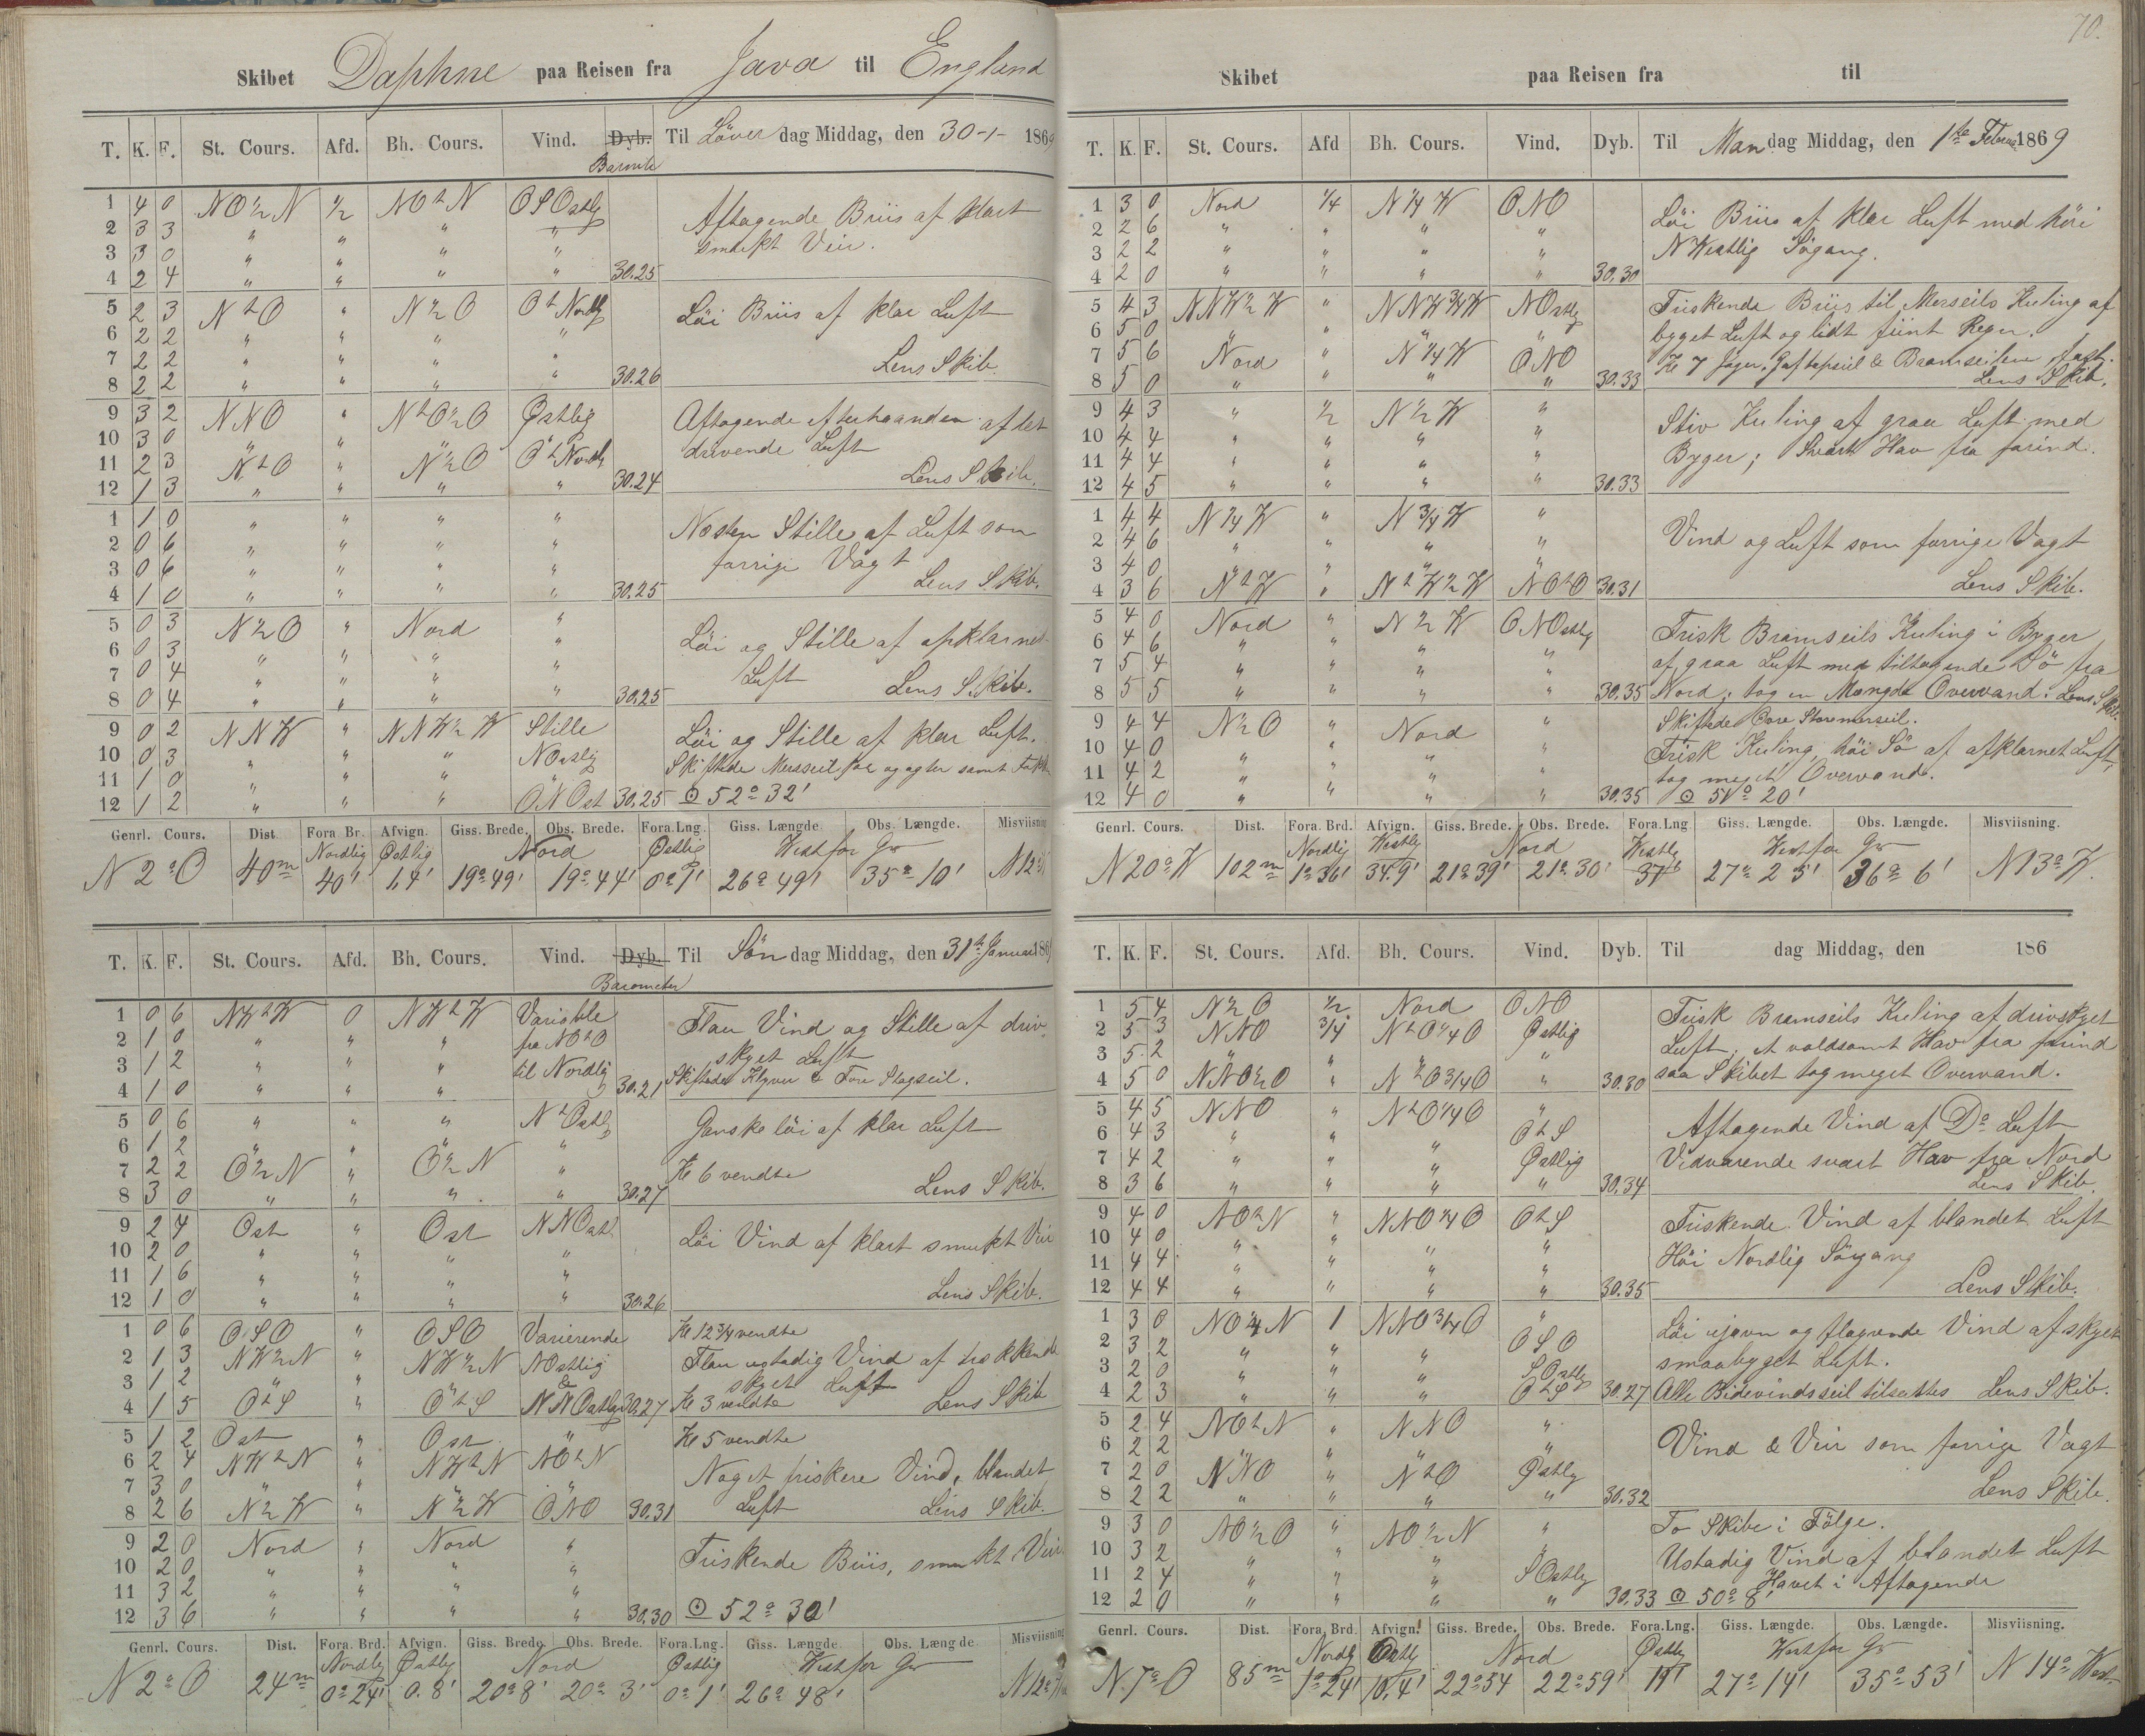 70.
Skibet Daphne paa Reisen fra Java til England
T. K. F. St. Cours. Afd. Bh. Cours. Vind. Dyb. Til Löver dag Middag, den 30-1- 1869
Barom
1 4 0 NO½N ½ NOtN OSOstlg Aftagende Briis af klart
2 3 3 " " " " smukt Veir.
3 3 0 " " " "
4 2 4 " " " " 30.25
5 2 3 NtO " N½O OtNordlg Löi Briis af klar Luft
6 2 2 " " " "
7 2 2 " " " " Lens Skib.
8 2 2 " " " " 30.26
9 3 2 NNO " NtO½O Østlig Aftagende efterhaanden af let
10 3 0 " " " " drivende Luft
11 2 3 NtO " N½O OtNordl
12 1 3 " " " " 30.24 Lens Skib.
1 1 0 " " " " Næsten Stille af Luft som
2 0 6 " " " " forrige Vagt
3 0 6 " " " " Lens Skib.
4 1 0 " " " " 30.25
5 0 3 N½O " Nord " Löi og Stille af opklarnet
6 0 3 " " " "
7 0 4 " " " " Luft Lens Skib.
8 0 4 " " " " 30.25
9 0 2 NNW " NNW½W Stille Löi og Stille af klar Luft.
10 0 3 " " " NOstlig Skiftede Mersseil for og agter samt Fok
11 1 0 " " "
12 1 2 " " " ONOst 30.25 ☉ 52° 32'
Genrl. Cours. Dist. Fora. Br. Afvign. Giss. Brede. Obs. Brede. Fora.Lng. Giss. Længde. Obs. Længde. Misviisning
Nordlig Østlig Nord Østlig West for Gr
N 2° O 40m 40' 1,4' 19° 49' 19° 44' 0° 1' 26° 49' 35° 10' N 12°
T. K. F. St. Cours. Afd. Bh. Cours. Vind. Dyb. Til Sön dag Middag, den 31te Januar 186
Barometer
1 0 6 NWtW 0 NWtW Variable Flau Vind og Stille af driv
2 1 0 " " " fra NOtO skyet Luft
3 1 2 " " " til Nordlig Skiftede Klyver & Fore Stagseil.
4 1 0 " " " 30.21
5 0 6 " " " NtOstlg Ganske löi af klar Luft
6 1 2 " " " "
7 2 2 O½N " O½N " Kl 6 vendte
8 3 0 " " " " 30.27 Lens Skib.
9 2 4 Ost " Ost NNOstl Löi Vind af klart smukt Veir
10 2 0 " " " "
11 1 6 " " " " Lens Skib.
12 1 0 " " " " 30.26
1 0 6 OSO " OSO Varierende Kl 12¾ vendte
2 1 3 NW½N " NW½N NOstlig Flau ustadig Vind af trækkende
3 1 2 " " " & skyet Luft
4 1 5 OtS " OtS NNOstlg 30.27 Kl 3 vendte Lens Skib
5 1 2 Ost " Ost " Kl 5 vendte
6 2 4 NWtN " NWtN NOtN Noget friskere Vind, blandet
7 3 0 " " " "
8 2 6 N½W " N½W ONO 30.31 Luft Lens Skib.
9 2 0 Nord " Nord " Friskende Briis, smukt Veir
10 2 0 " " " "
11 3 2 " " " "
12 3 6 " " " " 30.30 ☉ 52° 30'
Genrl. Cours. Dist. Fora. Brd. Afvign. Giss. Brede. Obs. Brede. Fora.Lng. Giss. Længde. Obs. Længde Misviisning
Nordlg Østlig Nord Østlig West for Gr
N 2° O 24m 0° 24' 0.8' 20° 8' 20° 3' 0° 1' 26° 48' N 12°
Skibet paa Reisen fra til
T. K. F. St. Cours. Afd Bh. Cours. Vind. Dyb. Til Man dag Middag, den 1te Februar 1869
1 3 0 Nord ¼ N¼W ONO Löi Briis af klar Luft med höi
2 2 6 " " " " NWestlig Sögang.
3 2 2 " " " "
4 2 0 " " " " 30.30
5 4 3 NNW½W " NNW¾W NOstlig Friskende Briis til Merseils Kuling af
6 5 0 " " " " bygget Luft og lidt fiint Regn.
7 5 6 Nord " N¼W ONO Kl 7 Jager, Gaftopseil & Bramseilene fast.
8 5 0 " " " " 30.33 Lens Skib.
9 4 3 " ½ N½W " Stiv Kuling af graa Luft med
10 4 4 " " " " Byger; Svært Hav fra forind.
11 4 4 " " " "
12 4 5 " " " " 30.33
1 4 4 N¼W " N¾W " Vind og Luft som forrige Vagt
2 4 6 " " " "
3 4 0 " " " "
4 3 6 NtW " NtW½W NOtO 30.31 Lens Skib.
5 4 0 Nord " N½W ONOstlg Frisk Bramseils Kuling i Byger
6 4 6 " " " " af graa Luft med tiltagende Sö fra
7 5 4 " " " "
8 5 5 " " " " 30.35 Nord; tog en Mængde Overvand. Lens Skib.
9 4 4 N½O " Nord " Skiftede Övre Storemerseil.
10 4 0 " " " " Frisk Kuling, höi Sö af afklarnet Luft,
11 4 2 " " " " tog meget Overvand.
12 4 0 " " " " 30.35 ☉ 51° 20'
Genrl. Cours. Dist. Fora. Brd. Afvign. Giss. Brede. Obs. Brede. Fora.Lng Giss. Længde. Obs. Længde. Misviisning.
Nordlig Westlig Nord Westlg West for Gr
N 20° W 102m 1° 36' 34.9' 21° 39' 21° 30' 37' 27° 25' 36° 6' N 13° W.
T. K. F. St. Cours. Afd. Bh. Cours. Vind. Dyb. Til dag Middag, den 186
1 5 4 N½O ½ Nord ONO Frisk Bramseils Kuling af drivskyet
2 5 3 NNO ¾ NtO¼O Østlig Luft, et voldsomt Hav fra forind
3 5 2 " " " "
4 5 0 NNO½O " NtO¾O " 30.30 saa Skibet tog meget Overvand.
5 4 5 NNO " NtO¼O " Aftagende Vind af Do Luft
6 4 3 " " " OtS
7 4 2 " " " Østlig Vedvarende svært Hav fra Nord
8 3 6 " " " " 30.34 Lens Skib.
9 4 0 NOtN " NNO¼O OtS Friskende Vind af blandet Luft
10 4 0 " " " " Höi Nordlig Sögang
11 4 4 " " " "
12 4 4 " " " " 30.35 Lens Skib.
1 3 0 NO¼N 1 NNO¾O " Löi ujævn og flagrende Vind af skyet
2 3 2 " " " OSO smaabyget Luft.
3 2 0 " " " SOstlg
4 2 3 " " " OtS 30.27 Alle Bidevindsseil tilsattes Lens Skib.
5 2 4 NOtN " NNO " Vind & Veir som forrige Vagt
6 2 2 " " " "
7 2 0 NNO " NtO Østlg
8 2 2 " " " " 30.32 Lens Skib.
9 3 0 NO½O " NO½N " To Skibe i Fölge.
10 3 2 " " " " Ustadig Vind af blandet Luft
11 2 4 " " " SOstlg Havet i Aftagende
12 2 0 " " " " 30.33 ☉ 50° 8'
Genrl. Cours. Dist. Fora. Brd. Afvign. Giss. Brede. Obs. Brede. Fora. Lng. Giss. Længde. Obs. Længde. Misviisning.
Nordlg Østlg Nord Østlg West for Gr
N. 7° O 85m 1° 24' 10.4' 22° 54 22° 59' 11' 27° 14' 35° 53' N 14° West